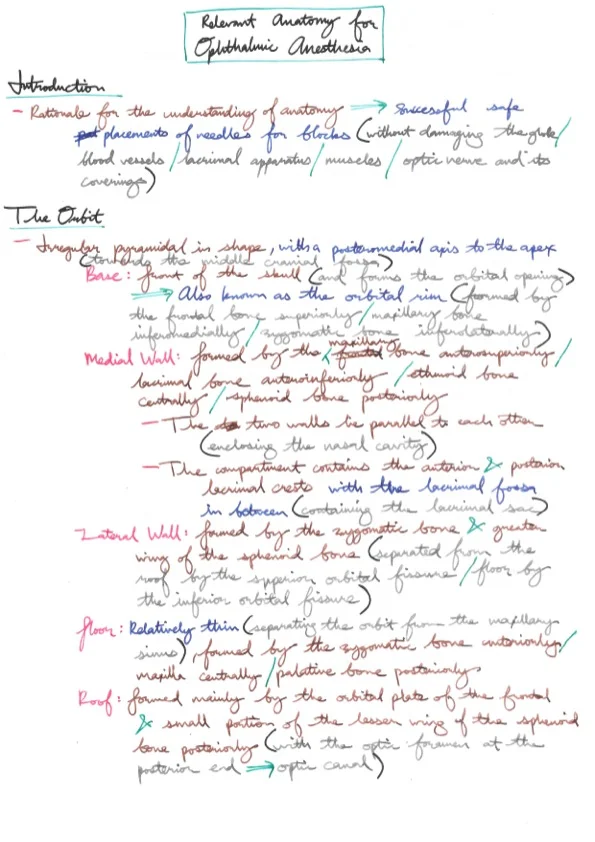 Relevant Anatomy for
Ophthalmic Anesthesia
Introduction
- Rationale for the understanding of anatomy ⟹ successful safe
placements of needles for blocks (without damaging the globe/
blood vessels/lacrimal apparatus/muscles/optic nerve and its
coverings)
The Orbit
- Irregular pyramidal in shape, with a posteromedial axis to the apex
(towards the middle cranial fossa)
Base: front of the skull (and forms the orbital opening)
⟹ Also known as the orbital rim (formed by
the frontal bone superiorly/maxillary bone
inferomedially/zygomatic bone inferolaterally)
Medial Wall: formed by the maxillary bone anterosuperiorly/
lacrimal bone anteroinferiorly/ethmoid bone
centrally/sphenoid bone posteriorly
- The two walls lie parallel to each other
(enclosing the nasal cavity)
- The compartment contains the anterior & posterior
lacrimal crests with the lacrimal fossa
in between (containing the lacrimal sac)
Lateral Wall: formed by the zygomatic bone & greater
wing of the sphenoid bone (separated from the
roof by the superior orbital fissure/floor by
the inferior orbital fissure)
Floor: Relatively thin (separating the orbit from the maxillary
sinus), formed by the zygomatic bone anteriorly/
maxilla centrally/palatine bone posteriorly
Roof: formed mainly by the orbital plate of the frontal
& small portion of the lesser wing of the sphenoid
bone posteriorly (with the optic foramen at the
posterior end ⟹ optic canal)